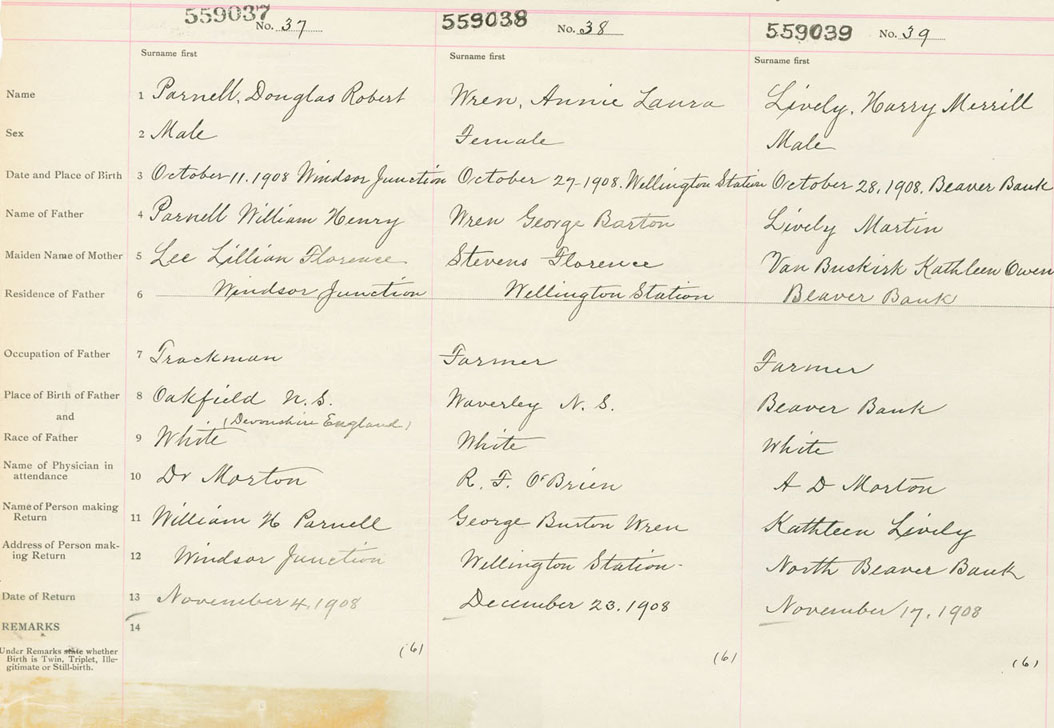 559037 No. 37 559038 No. 38 559039 No. 39
Surname first Surname first Surname first
Name 1 Parnell, Douglas Robert Wren, Annie Laura Lively, Harry Merrill
Sex 2 Male Female Male
Date and Place of Birth 3 October 11. 1908 Windsor Junction October 27-1908. Wellington Station October 28, 1908. Beaver Bank
Name of Father 4 Parnell William Henry Wren George Barton Lively Martin
Maiden Name of Mother 5 Lee Lillian Florence Stevens Florence Van Buskirk Kathleen Owen
Residence of Father 6 Windsor Junction Wellington Station Beaver Bank
Occupation of Father 7 Trackman Farmer Farmer
Place of Birth of Father 8 Oakfield N.S. Waverley N.S. Beaver Bank
and (Devonshire England)
Race of Father 9 White White White
Name of Physician in
attendance 10 Dr Morton R. F. O'Brien A D Morton
Name of Person making
Return 11 William H Parnell George Burton Wren Kathleen Lively
Address of Person mak-
ing Return 12 Windsor Junction Wellington Station- North Beaver Bank
Date of Return 13 November 4, 1908 December 23, 1908 November 17, 1908
REMARKS 14
Under Remarks state whether
Birth is Twin, Triplet, Ille-
gitimate or Still-birth.
(6) (6) (6)